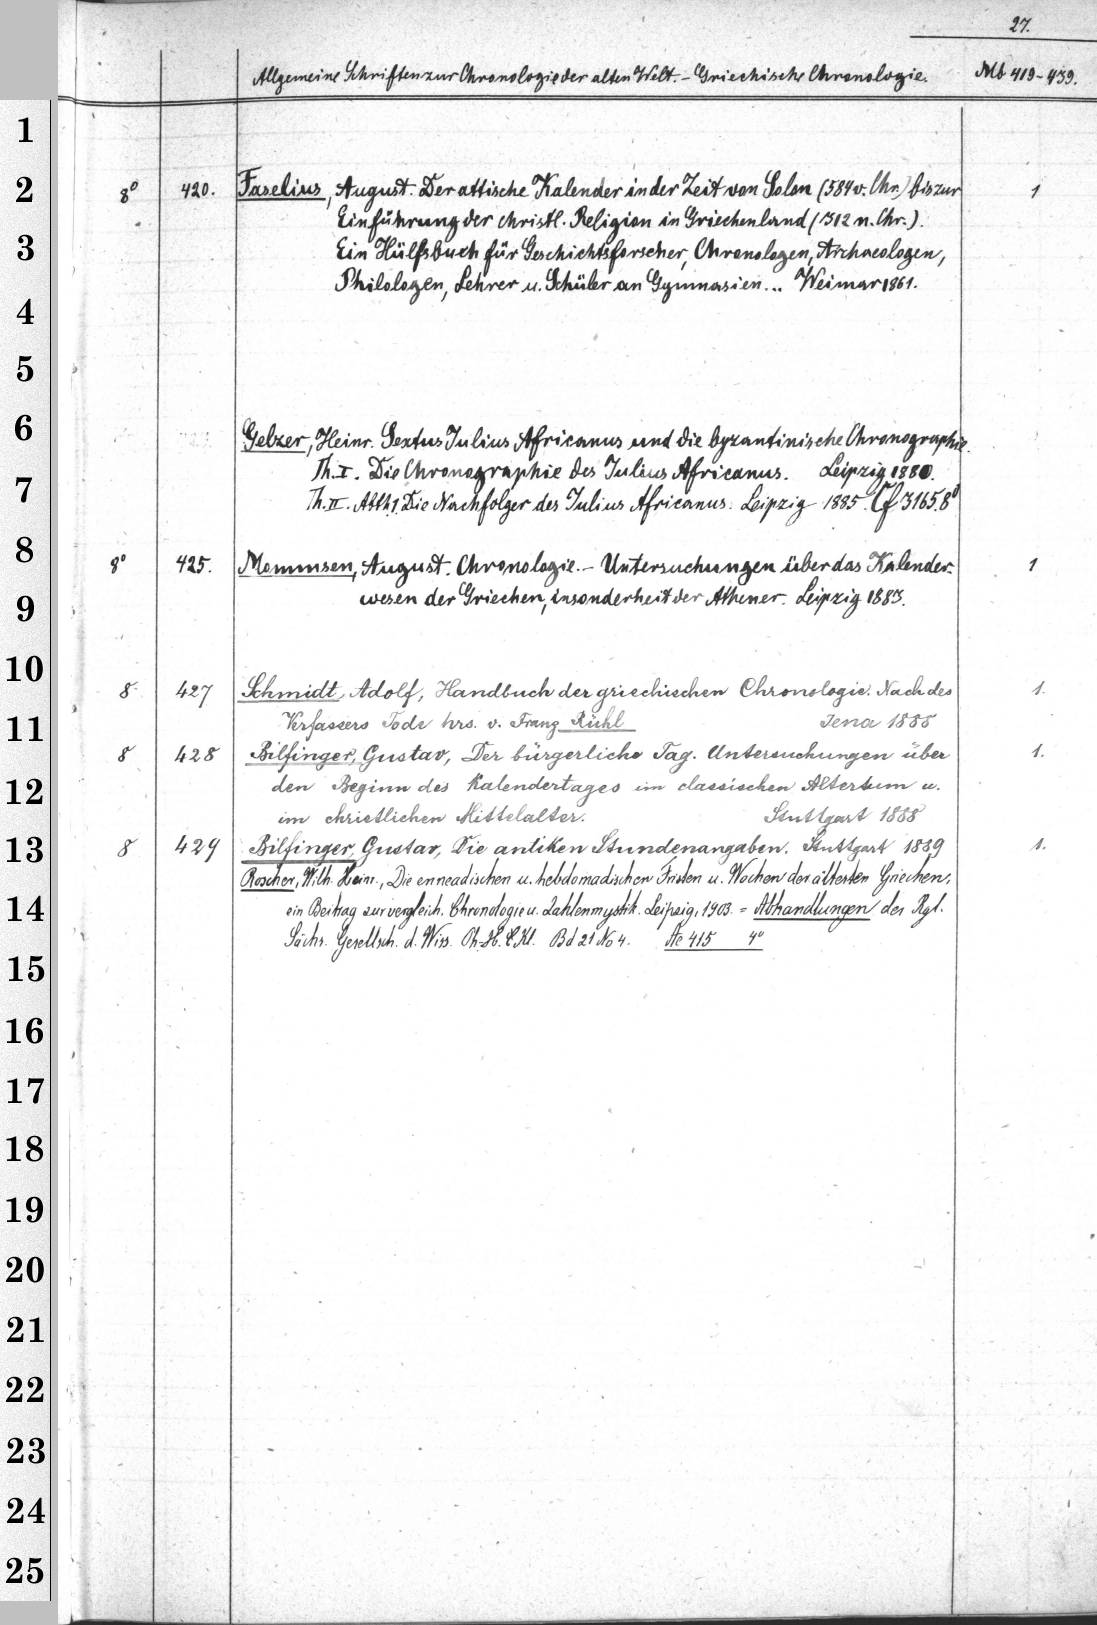 27.
Allgemeine Schriften zur Chronologie der alten Welt. – Griechische Chronologie. Mb 419–439.
1
2 8° 420. Faselius, August. Der attische Kalender in der Zeit von Solon (584 v. Chr.) bis zur 1
Einführung der christl. Religion in Griechenland (312 n. Chr.).
3 Ein Hülfsbuch für Geschichtsforscher, Chronologen, Archaeologen,
Philologen, Lehrer u. Schüler an Gymnasien... Weimar 1861.
4
5
6 Gelzer, Heinr. Sextus Julius Africanus und die byzantinische Chronographie.
Th. I. Die Chronographie des Julius Africanus. Leipzig 1880.
7 Th. II. Abth. 1. Die Nachfolger des Julius Africanus. Leipzig 1885. Cf 3165.8°
8 8° 425. Mommsen, August. Chronologie. – Untersuchungen über das Kalender- 1
9 wesen der Griechen, insonderheit der Athener. Leipzig 1883.
10 8 427 Schmidt, Adolf, Handbuch der griechischen Chronologie. Nach des 1.
11 Verfassers Tode hrs. v. Franz Rühl Jena 1888
8 428 Bilfinger, Gustav, Der bürgerliche Tag. Untersuchungen über 1.
12 den Beginn des Kalendertages im classischen Altertum u.
im christlichen Mittelalter. Stuttgart 1888
13 8 429 Bilfinger, Gustav, Die antiken Stundenangaben. Stuttgart 1889 1.
Roscher, Wilh. Heinr., Die enneadischen u. hebdomadischen Fristen u. Wochen der ältesten Griechen,
14 ein Beitrag zur vergleich. Chronologie u. Zahlenmystik. Leipzig, 1903. = Abhandlungen der Kgl.
Sächs. Gesellsch. d. Wiss. Ph.-H. Cl. Bd 21 No 4. Ac 415 4°
15
16
17
18
19
20
21
22
23
24
25